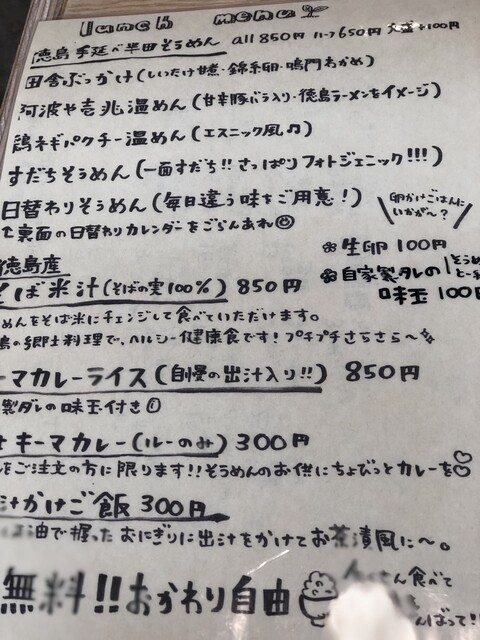 lunch menu
徳島 手延べ半田そうめん all 850円 ハーフ650円 大盛+100円
田舎ぶっかけ(しいたけ甘煮・錦糸卵・鳴門わかめ)
阿波や壱兆温めん(甘辛豚バラ入り・徳島ラーメンをイメージ)
鶏ネギパクチー温めん(エスニック風♫)
すだちそうめん(一面すだち!!さっぱりフォトジェニック!!!)
日替わりそうめん(毎日違う味をご用意!)
↑裏面の日替わりカレンダーをごらんあれ☺
卵かけごはんに
いかが〜?
生卵 100円
自家製ダレの
味玉 100円
徳島産
そば米汁(そばの実100%) 850円
めんをそば米にチェンジして食べていただけます。
島の郷土料理で、ヘルシー健康食です!プチプチさらさら〜
ーマカレーライス(自慢の出汁入り!!) 850円
製ダレの味玉付き
キーマカレー(ルーのみ) 300円
をご注文の方に限ります!!そうめんのお供にちょびっとカレーを♡
汁かけご飯 300円
油で握ったおにぎりに出汁をかけてお茶漬風に〜。
無料!!おかわり自由
食べて
んばって!!